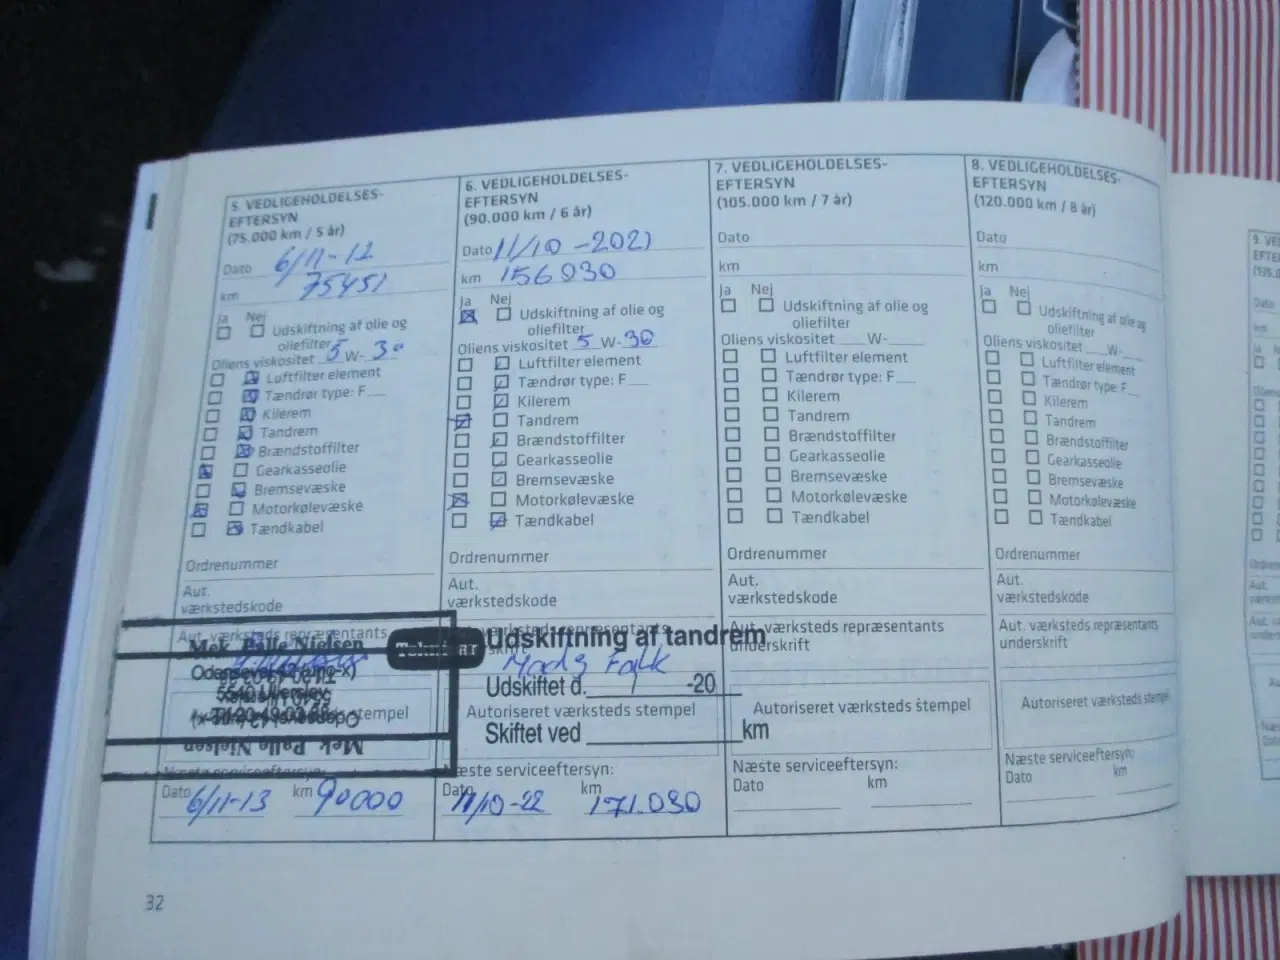 5. VEDLIGEHOLDELSES-
EFTERSYN
(75.000 km / 5 år)
Dato 6/11-12
km 75451
Ja Nej
Udskiftning af olie og
oliefilter
Oliens viskositet 5 W- 30
Luftfilter element
Tændrør type: F
Kilerem
Tandrem
Brændstoffilter
Gearkasseolie
Bremsevæske
Motorkølevæske
Tændkabel
Ordrenummer
Aut.
værkstedskode
Aut. værksteds repræsentants
Mek. Palle Nielsen
stempel
Mek. Palle Nielsen
Næste serviceeftersyn:
Dato 6/11-13 km 90000
6. VEDLIGEHOLDELSES-
EFTERSYN
(90.000 km / 6 år)
Dato 11/10-2021
km 156030
Ja Nej
Udskiftning af olie og
oliefilter
Oliens viskositet 5 W- 30
Luftfilter element
Tændrør type: F
Kilerem
Tandrem
Brændstoffilter
Gearkasseolie
Bremsevæske
Motorkølevæske
Tændkabel
Ordrenummer
Aut.
værkstedskode
Udskiftning af tandrem
Mads Falk
Udskiftet d. / -20
Autoriseret værksteds stempel
Skiftet ved km
Næste serviceeftersyn:
Dato km
11/10-22 171.030
7. VEDLIGEHOLDELSES-
EFTERSYN
(105.000 km / 7 år)
Dato
km
Ja Nej
Udskiftning af olie og
oliefilter
Oliens viskositet W-
Luftfilter element
Tændrør type: F
Kilerem
Tandrem
Brændstoffilter
Gearkasseolie
Bremsevæske
Motorkølevæske
Tændkabel
Ordrenummer
Aut.
værkstedskode
Aut. værksteds repræsentants
underskrift
Autoriseret værksteds stempel
Næste serviceeftersyn:
Dato km
8. VEDLIGEHOLDELSES-
EFTERSYN
(120.000 km / 8 år)
Dato
km
Ja Nej
Udskiftning af olie og
oliefilter
Oliens viskositet W-
Luftfilter element
Tændrør type: F
Kilerem
Tandrem
Brændstoffilter
Gearkasseolie
Bremsevæske
Motorkølevæske
Tændkabel
Ordrenummer
Aut.
værkstedskode
Aut. værksteds repræsentants
underskrift
Autoriseret værksteds stempel
Næste serviceeftersyn:
Dato km
32